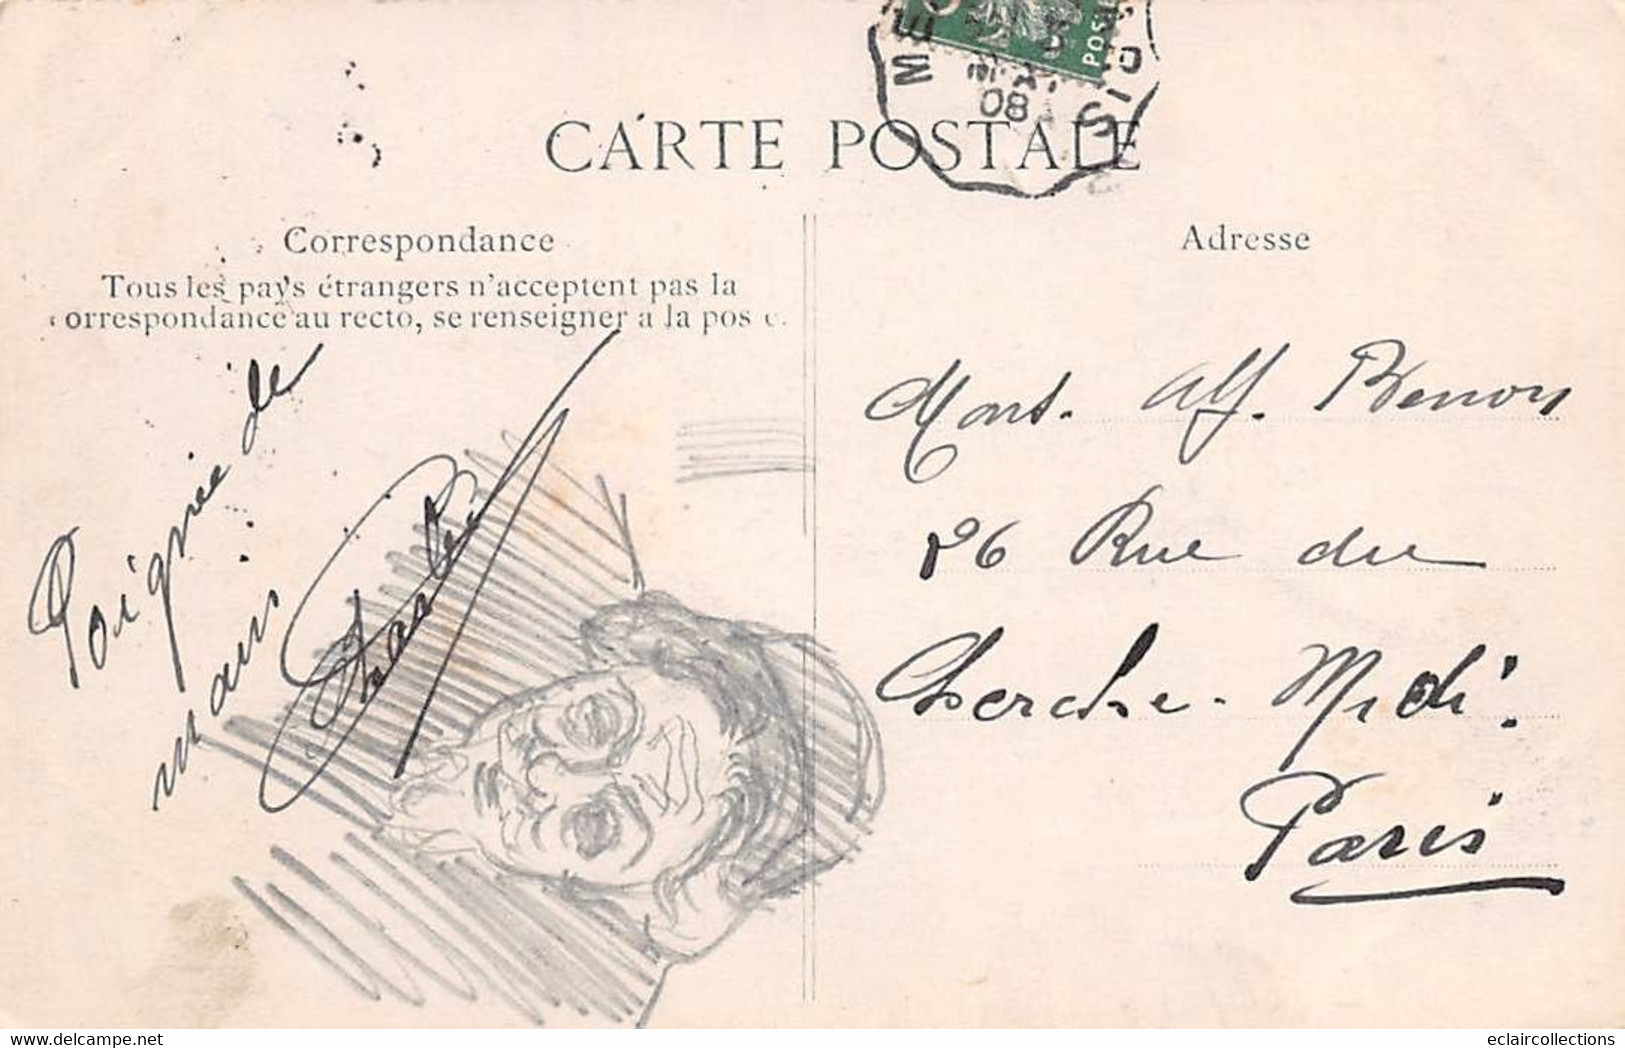 08
POS
CARTE POSTALE
Correspondance
Tous les pays étrangers n'acceptent pas la
correspondance au recto, se renseigner a la pos e.
Adresse
Poignée de
main
Charles
Mons. Alf. Benon
26 Rue du
Cherche-Midi
Paris
eclaircollections
www.delcampe.net